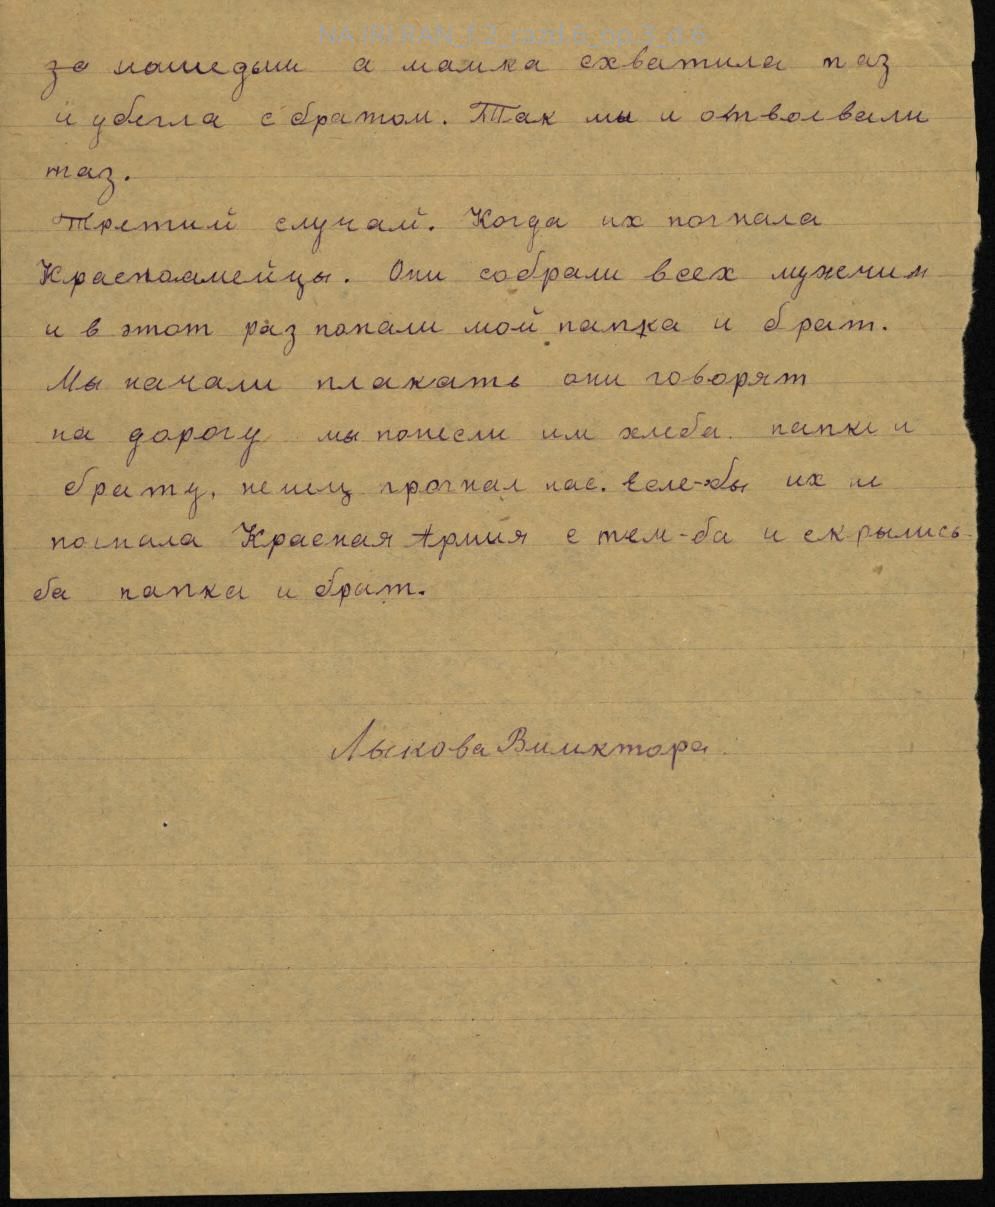 NA IRI RAN_f.2_razd.6_op.3_d.6
за лошедьми а мамка схватила таз
и убегла с братом. Так мы и отвоевали
таз.
Третий случай. Когда их погнала
Красноамейцы. Они собрали всех мужчин
и в этот раз попали мой папка и брат.
Мы начали плакать они говорят
на дорогу мы понесли им хлеба. папке и
брату, немец прогнал нас. Если-бы их не
погнала Красная Армия с тем-ба и скрылись-
ба папка и брат.
Лыкова